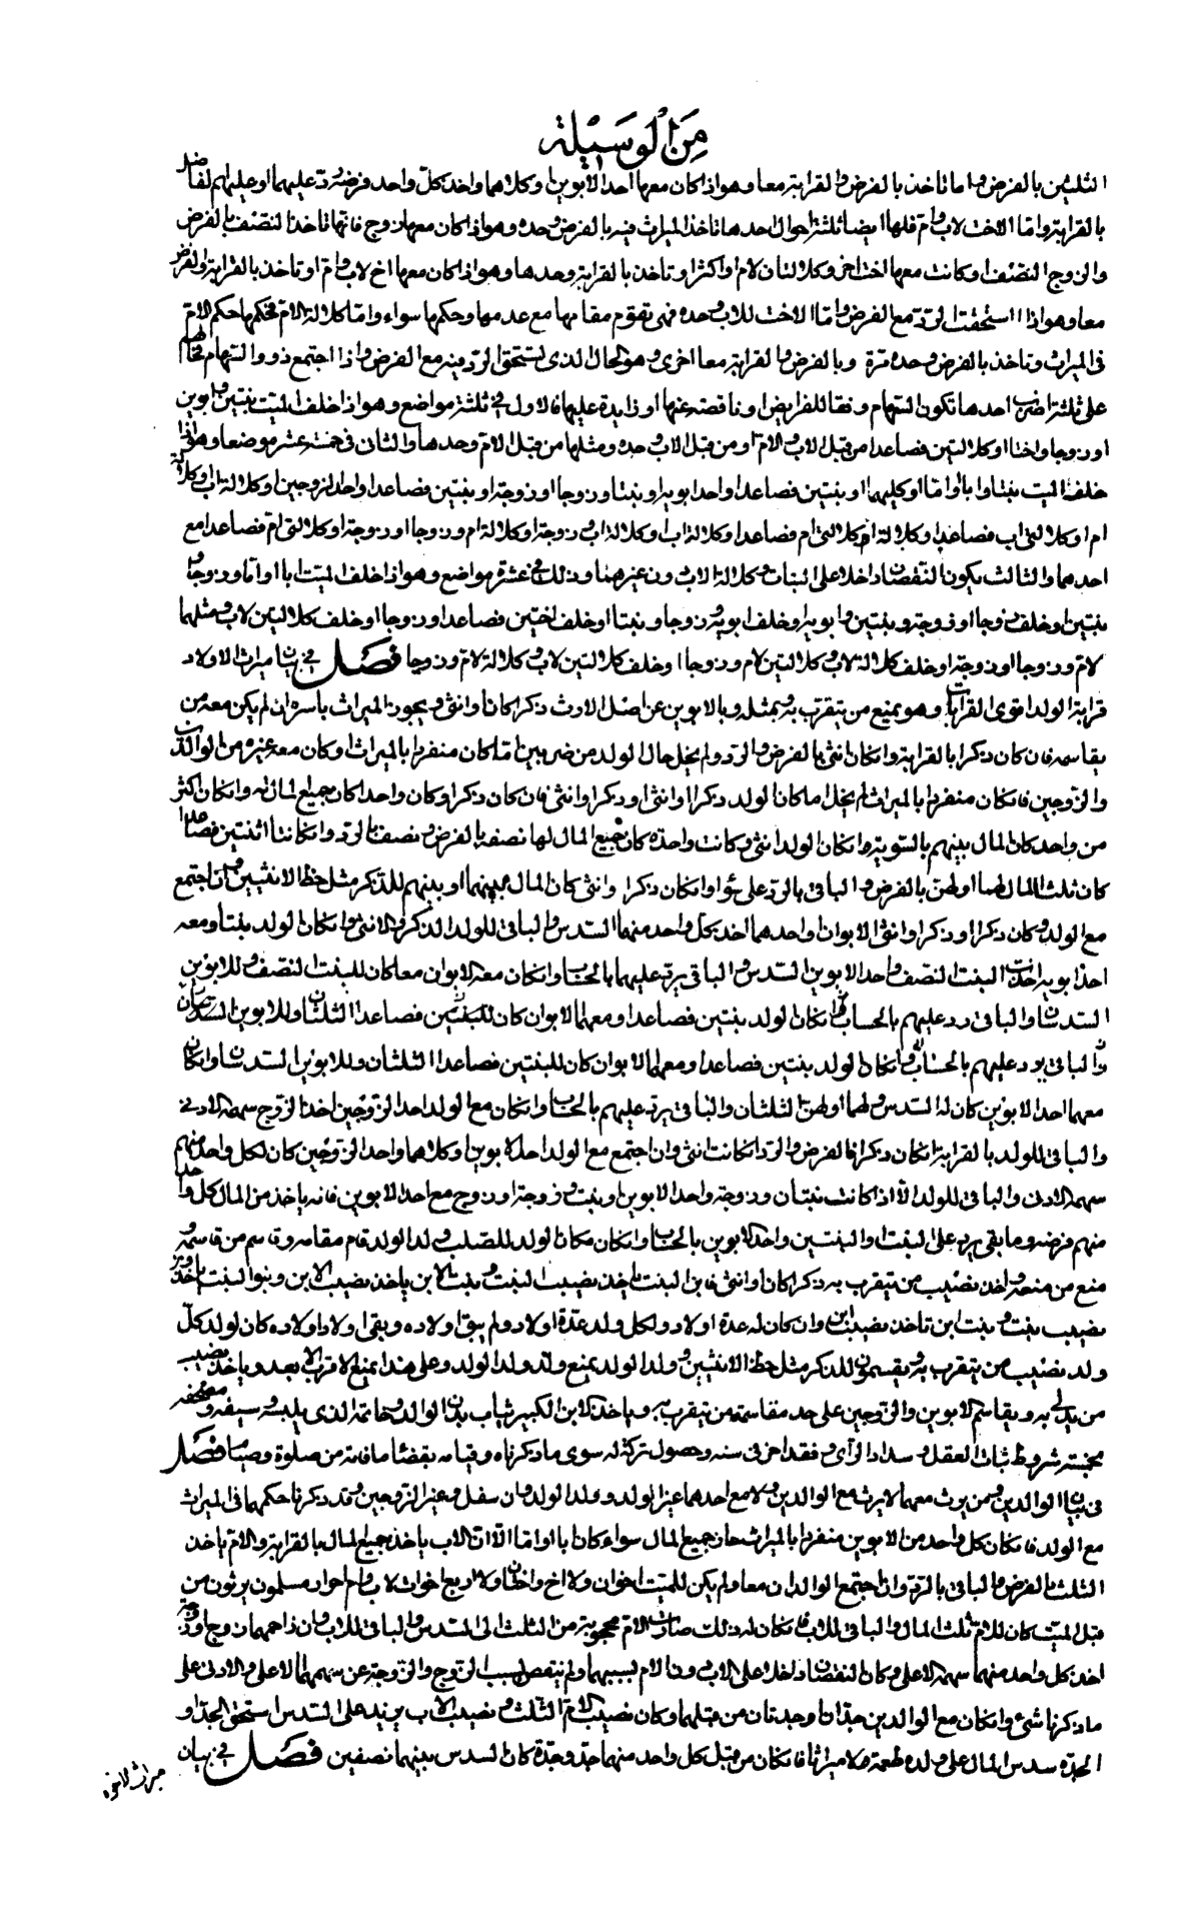 من الوسيلة
الثلثين بالفرض واما تاخذ بالفرض والقرابة معا وهو اذا كان معها احد الابوين او كلاهما واخذ كل واحد فرضه رد عليهما او عليهم الفاضل
بالقرابة واما الاخت لاب وام فلها ايضا ثلثة احوال احدها تاخذ الميراث فيه بالفرض وحده وهو اذا كان معها زوج فانها تاخذ النصف بالفرض
والزوج النصف او كانت معها اخت اخرى وكلالتان لام او اكثر او تاخذ بالقرابة وحدها وهو اذا كان معها اخ لاب وام او تاخذ بالقرابة والفرض
معا وهو اذا استحقت الرد مع الفرض واما الاخت للاب وحده فهى تقوم مقامها مع عدمها وحكمها سواء واما كلالة الام فحكمها حكم الام
فى الميراث وتاخذ بالفرض وحده مرة وبالفرض والقرابة معا اخرى وهو الحال الذى تستحق الرد فيه مع الفرض واذا اجتمع ذووا السهام
على ثلثة اضرب احدها تكون السهام وفقا للفرايض او ناقصة عنها او زايدة عليها فالاول فى ثلثة مواضع وهو اذا خلف الميت بنتين وابوين
او زوجا واختا او كلالتين فصاعدا من قبل الاب والام او من قبل الاب وحده ومثلها من قبل الام وحدها والثانى فى خمسة عشر موضعا وهو اذا
خلف الميت بنتا وابا او اما او كليهما او بنتين فصاعدا واحد ابويه او بنتا وزوجا او زوجة او بنتين فصاعدا واحد الزوجين او كلالة اب وكلالة
ام او كلالتى اب فصاعدا وكلالة ام او كلالتى ام فصاعدا وكلالة اب او كلالة اب وزوجة او كلالة ام وزوجا او زوجة او كلالتى ام فصاعدا مع
احدهما والثالث يكون النقصان داخلا على البنات وكلالة الاب دون غيرهما وذلك فى عشرة مواضع وهو اذا خلف الميت ابا او اما وزوجا و
بنتين او خلف زوجا او زوجة وبنتين وابويه او خلف ابويه وزوجا وبنتا او خلف اختين فصاعدا وزوجا او خلف كلالتين لاب ومثلهما
لام وزوجا او زوجة او خلف كلالة لاب وكلالتين لام وزوجا او خلف كلالتين لاب وكلالة لام وزوجا فصل فى بيان ميراث الاولاد
قرابة الولد اقوى القرابات وهو يمنع من يتقرب به وبمثله وبالابوين عن اصل الارث ذكرا كان او انثى ويحوز الميراث باسره ان لم يكن معه من
يقاسمه فان كان ذكرا بالقرابة وان كان انثى بالفرض والرد ولم يخل حال الولد من ضربين اما كان منفردا بالميراث او كان معه غيره من الوالدين
والزوجين فان كان منفردا بالميراث لم يخل اما كان الولد ذكرا او انثى او ذكرا وانثى فان كان ذكرا وكان واحدا كان جميع المال له وان كان اكثر
من واحد كان المال بينهم بالسوية وان كان الولد انثى وكانت واحدة كان جميع المال لها نصفه بالفرض ونصفه بالرد وان كانتا اثنتين فصاعدا
كان ثلثا المال لهما او لهن بالفرض والباقى بالرد على سواء وان كان ذكرا وانثى كان المال بينهما او بينهم للذكر مثل حظ الانثيين وان اجتمع
مع الولد وكان ذكرا او ذكرا وانثى الابوان او احدهما اخذ كل واحد منهما السدس والباقى للولد الذكر والانثى وان كان الولد بنتا ومعه
احد ابويه اخذت البنت النصف واحد الابوين السدس والباقى يرد عليهما بالحساب وان كان معه الابوان معا كان للبنت النصف وللابوين
السدسان والباقى رد عليهم بالحساب وان كان الولد بنتين فصاعدا ومعهما الابوان كان للبنتين فصاعدا الثلثان وللابوين السدسان
والباقى يرد عليهم بالحساب وان كان الولد بنتين فصاعدا ومعهما الابوان كان للبنتين فصاعدا الثلثان وللابوين السدسان وان كان
معهما احد الابوين كان له السدس ولهما او لهن الثلثان والباقى يرد عليهم بالحساب وان كان مع الولد احد الزوجين اخذ الزوج سهمه الادنى
والباقى للولد بالقرابة ان كان ذكرا وبالفرض والرد ان كانت انثى وان اجتمع مع الولد احد الابوين او كلاهما واحد الزوجين كان لكل واحد منهم
سهمه الادنى والباقى للولد الا اذا كانت بنتان وزوجة واحد الابوين او بنت وزوجة او زوج مع احد الابوين فانه ياخذ من المال كل واحد
منهم فرضه وما بقى يرد على البنت او البنتين واحد الابوين بالحساب وان كان مكان الولد للصلب ولد الولد قام مقامه وقاسم من قاسمه و
منع من منعه واخذ نصيب من يتقرب به ذكرا كان او انثى فابن البنت ياخذ نصيب البنت وبنت الابن ياخذ نصيب الابن وبنوا البنت ياخذون
نصيب بنت وبنت ابن تاخذ نصيب ابن وان كان له عدة اولاد ولكل ولد عدة اولاد ولم يبق اولاده وبقى اولاد اولاده كان لولد كل
ولد نصيب من يتقرب به ويقسمون للذكر مثل حظ الانثيين وولد الولد يمنع ولد ولد الولد وعلى هذا يمنع الاقرب الابعد وياخذ نصيب
من يدلى به ويقاسم الابوين والزوجين على حد مقاسمة من يتقرب به وياخذ الابن الكبير ثياب بدن الوالد وخاتمه الذى يلبسه وسيفه ومصحفه
بخمسة شروط ثبات العقل وسداد الرأى وفقد اخر فى سنه وحصول تركة له سوى ما ذكرناه وقيامه بقضاء ما فاته من صلوة وصيام فصل
فى بيان الوالدين ومن يرث معهما لا يرث مع الوالدين ولا مع احدهما غير الولد وولد الولد وان سفل وغير الزوجين وقد ذكرنا حكمهما فى الميراث
مع الولد فان كان كل واحد من الابوين منفردا بالميراث حاز جميع المال سواء كان ابا او اما الا ان الاب ياخذ جميع المال بالقرابة والام ياخذ
الثلث بالفرض والباقى بالرد وان اجتمع الوالدان معا ولم يكن للميت اخوان ولا اخ واختان ولا اربع اخوات لاب وام احرار مسلمون يرثون من
قبل الميت كان للام ثلث المال والباقى للاب فان كان له ذلك صارت الام محجوبة من الثلث الى السدس والباقى للاب وان زاحمهما زوج او زوجة
اخذ كل واحد منهما سهمه الاعلى وكان النقصان داخلا على الاب دون الام بسببهما ولم ينتقص لسبب الزوج والزوجة عن سهمهما الاعلى والادنى على
ما ذكرنا شئ وان كان مع الوالدين جدان وجدتان من قبلهما وكان نصيب الام الثلث ونصيب الاب يزيد على السدس استحق الجد او
الجدة سدس المال على ولده طعمة ولا ميراثا فان كان من قبل كل واحد منهما جد وجدة كان السدس بينهما نصفين فصل فى بيان
ميراث الاخوة